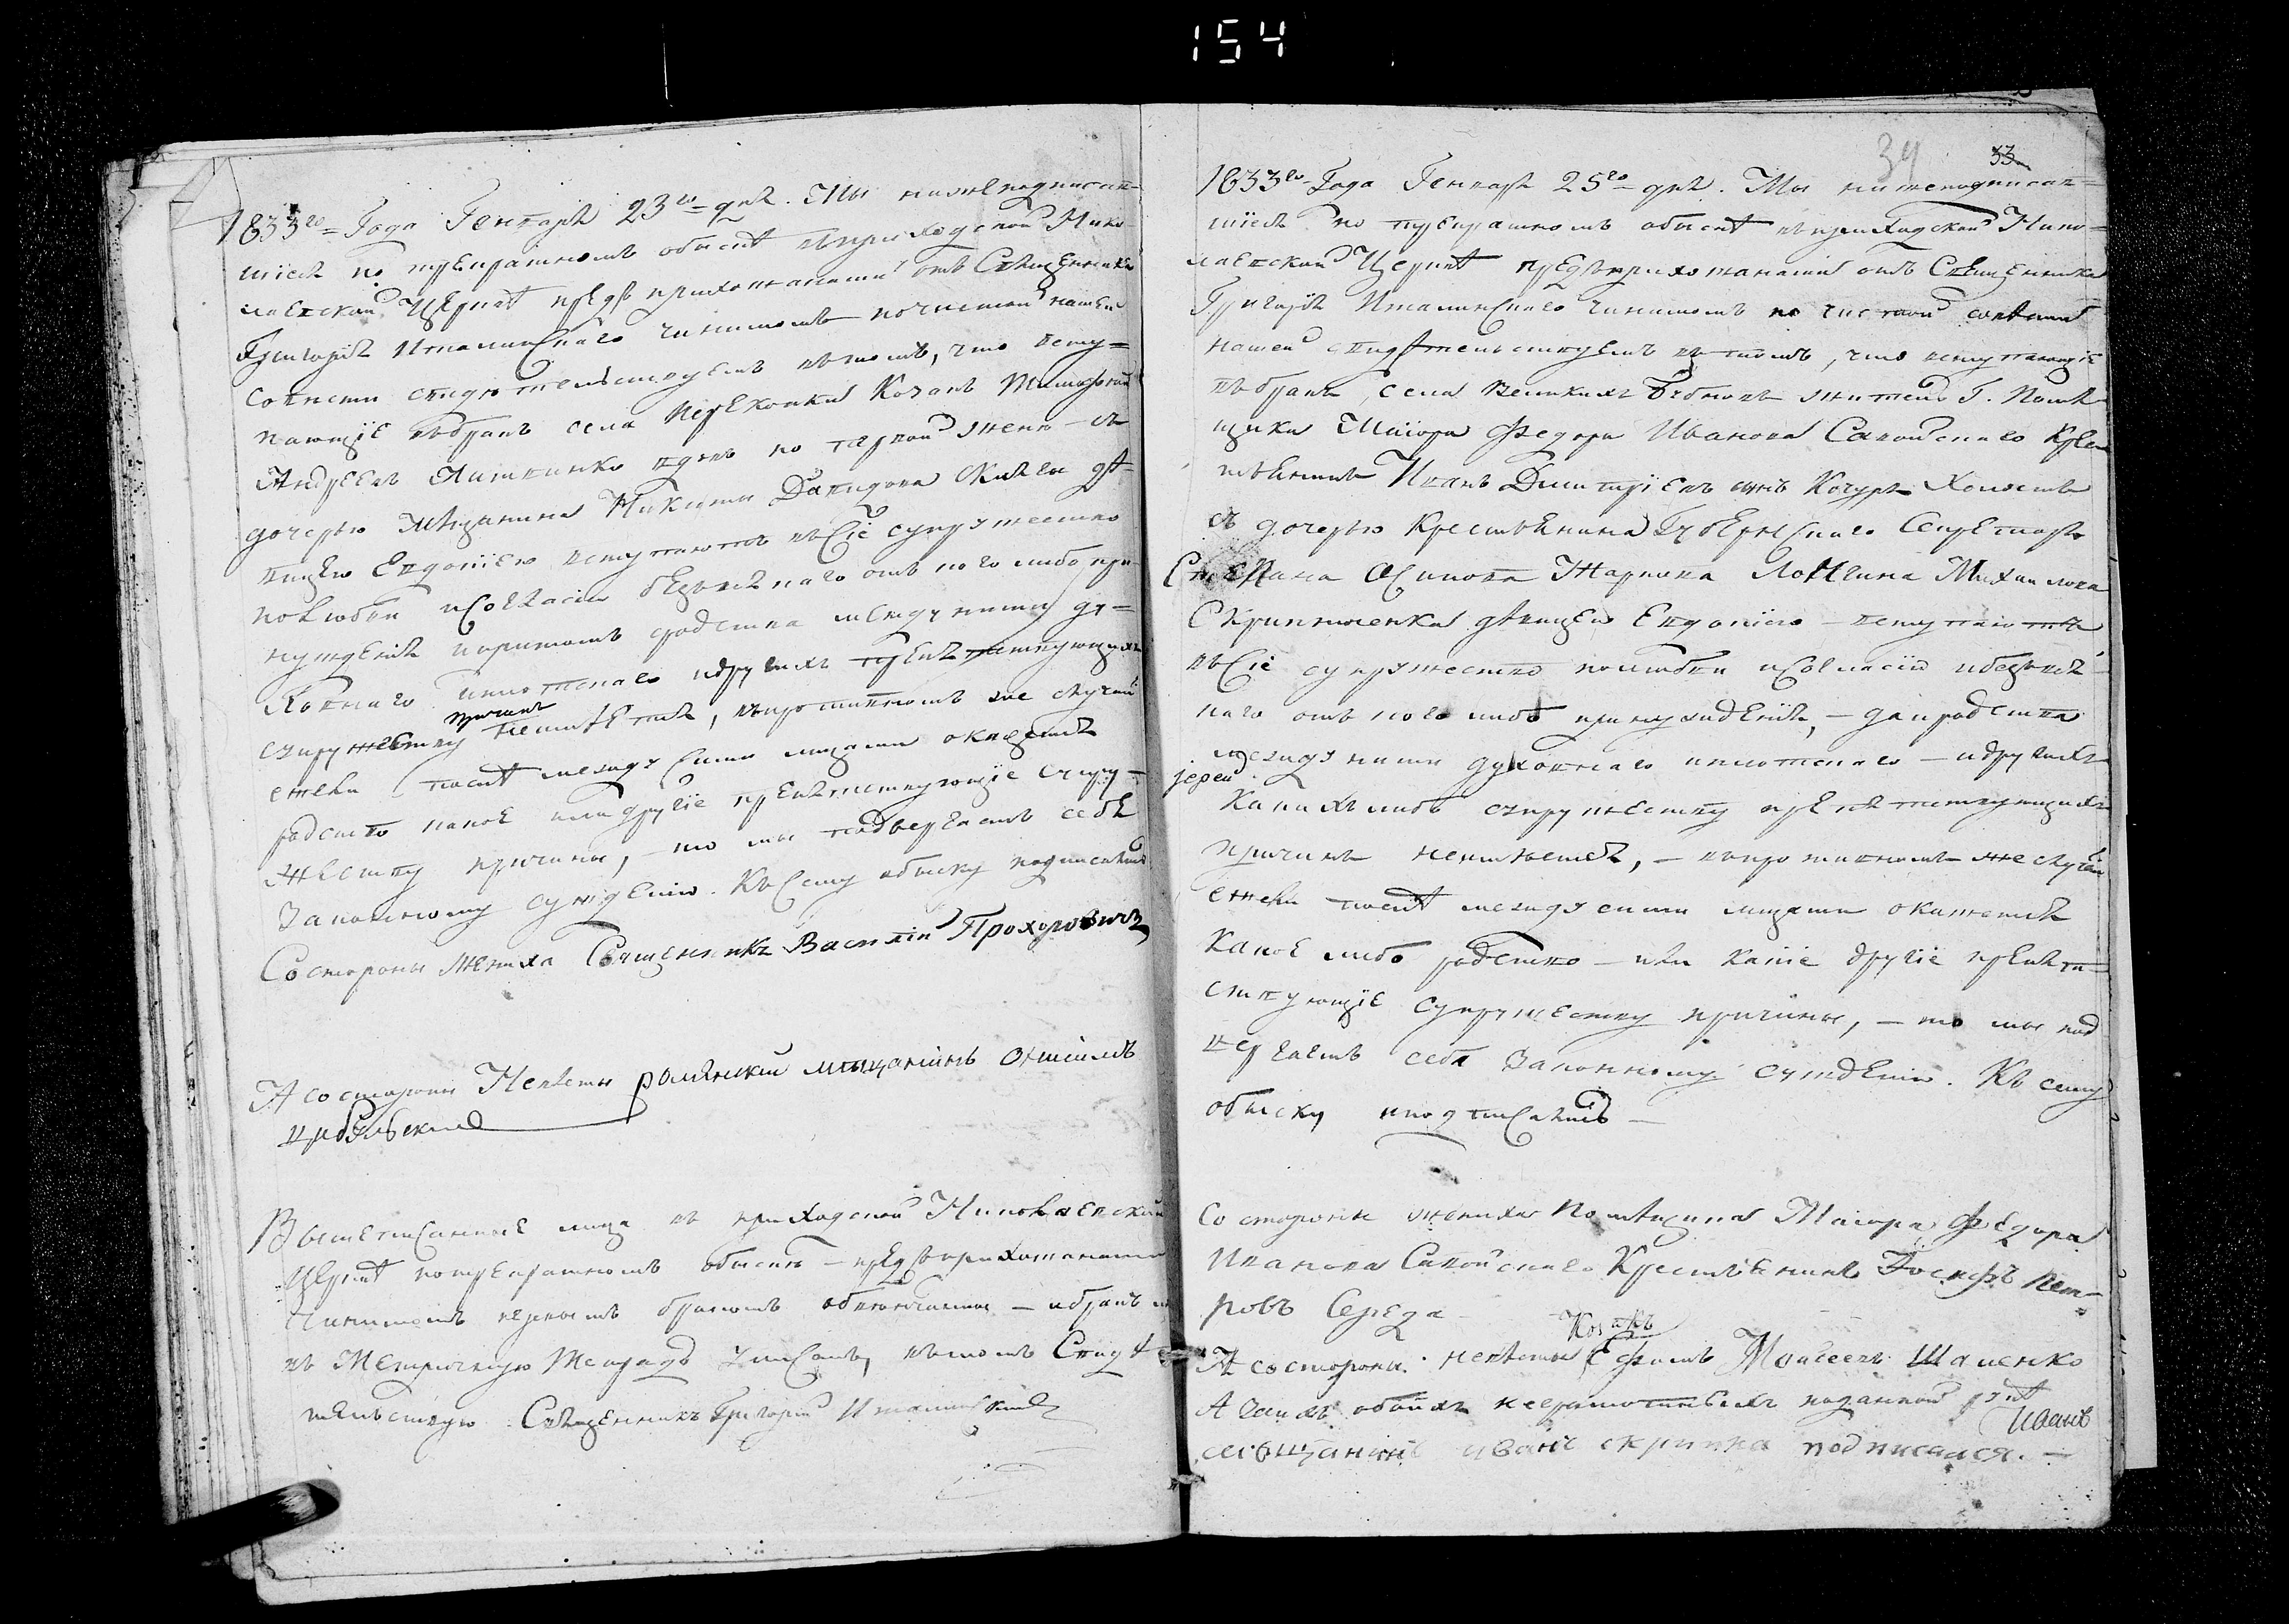 154
1833го= Года Генваря 23го= дня. Мы нижеподписав-
шіеся по троекратномъ обыскѣ въ приходской Нико-
лаевской Церквѣ предъ прихожанами отъ Священника
Григорія Италинскаго чинимомъ по чистой нашей
совѣсти свидѣтельствуемъ въ томъ, что всту=
пающіе въ бракъ села Перекопки Козакъ Тимофей
Андреевъ Литвинко вдовъ по первой женѣ съ
дочерью Мѣщанина Никиты Давидова дѣ-
вицею Евдокіею вступаютъ въ сіе супружество
по любви и согласію безъ всякаго отъ кого либо при-
нужденія и притомъ родства между ними ду=
ховнаго и плотскаго и другихъ препятствующихъ
супружеству причинъ неимѣется, въ противномъ же случаѣ
ежели послѣ между сими лицами окажется
родство какое или другіе препятствующіе супру-
жеству причины, – то мы подвергаемъ себя
Законному сужденію. Къ сему обыску подписались
Со стороны Жениха Священникъ Василій Прохоровичъ
А со стороны Невѣсты роменский мещанинъ
Вышеписанные лица въ приходской Николаевской
Церквѣ по троекратномъ обыскѣ – предъ прихожанами
чинимомъ первымъ бракомъ обвенчаны – и бракъ
въ Метричную Тетрадь записанъ, въ томъ Свидѣ-
тельствую Священникъ Григорій Италинскій
34 33
1833го= Года Генваря 25го= дня. Мы нижеподписав=
шіеся по троекратномъ обыскѣ въ приходской Нико=
лаевской Церквѣ предъ прихожанами отъ Священника
Григорія Италинскаго чинимомъ по чистой совѣсти
нашей свидѣтельствуемъ въ томъ, что вступающіе
въ бракъ, села Великихъ Бубновъ житель Г. Помѣ-
щика Маіора Федора Иванова Савойскаго Крес
тьянинъ Иванъ Дмитріевъ сынъ Кочура Холостъ
съ дочерью Крестьянина Губернскаго Секретаря
Степана Осипова Лонгина Михаилова
Скрипченка дѣвицею Евдокіею – вступаютъ
въ сіе супружество по любви и согласію и безъ вся-
каго отъ кого либо принужденія, – да и родства
между ними духовнаго и плотскаго – и другихъ
іерей
какихъ либо супружеству препятствующихъ
причинъ неимѣется, – въ противномъ же случаѣ
ежели послѣ между сими лицами окажется
какое либо родство – или какіе другіе препят=
ствующіе супружеству причины, – то мы под
вергаемъ себя Законному сужденію. Къ сему
обыску и подписались –
Со стороны жениха Помѣщика Маіора Федора
Иванова Савойскаго Крестьянинъ Іосифъ Пет-
ровъ Середа –
А со стороны невѣсты Козакъ Ефимъ Моисеевъ Шаменко
А за ихъ обоихъ неграмотныхъ поданной рукѣ
Иванъ
мещанинъ иванъ скрипка подписался. –